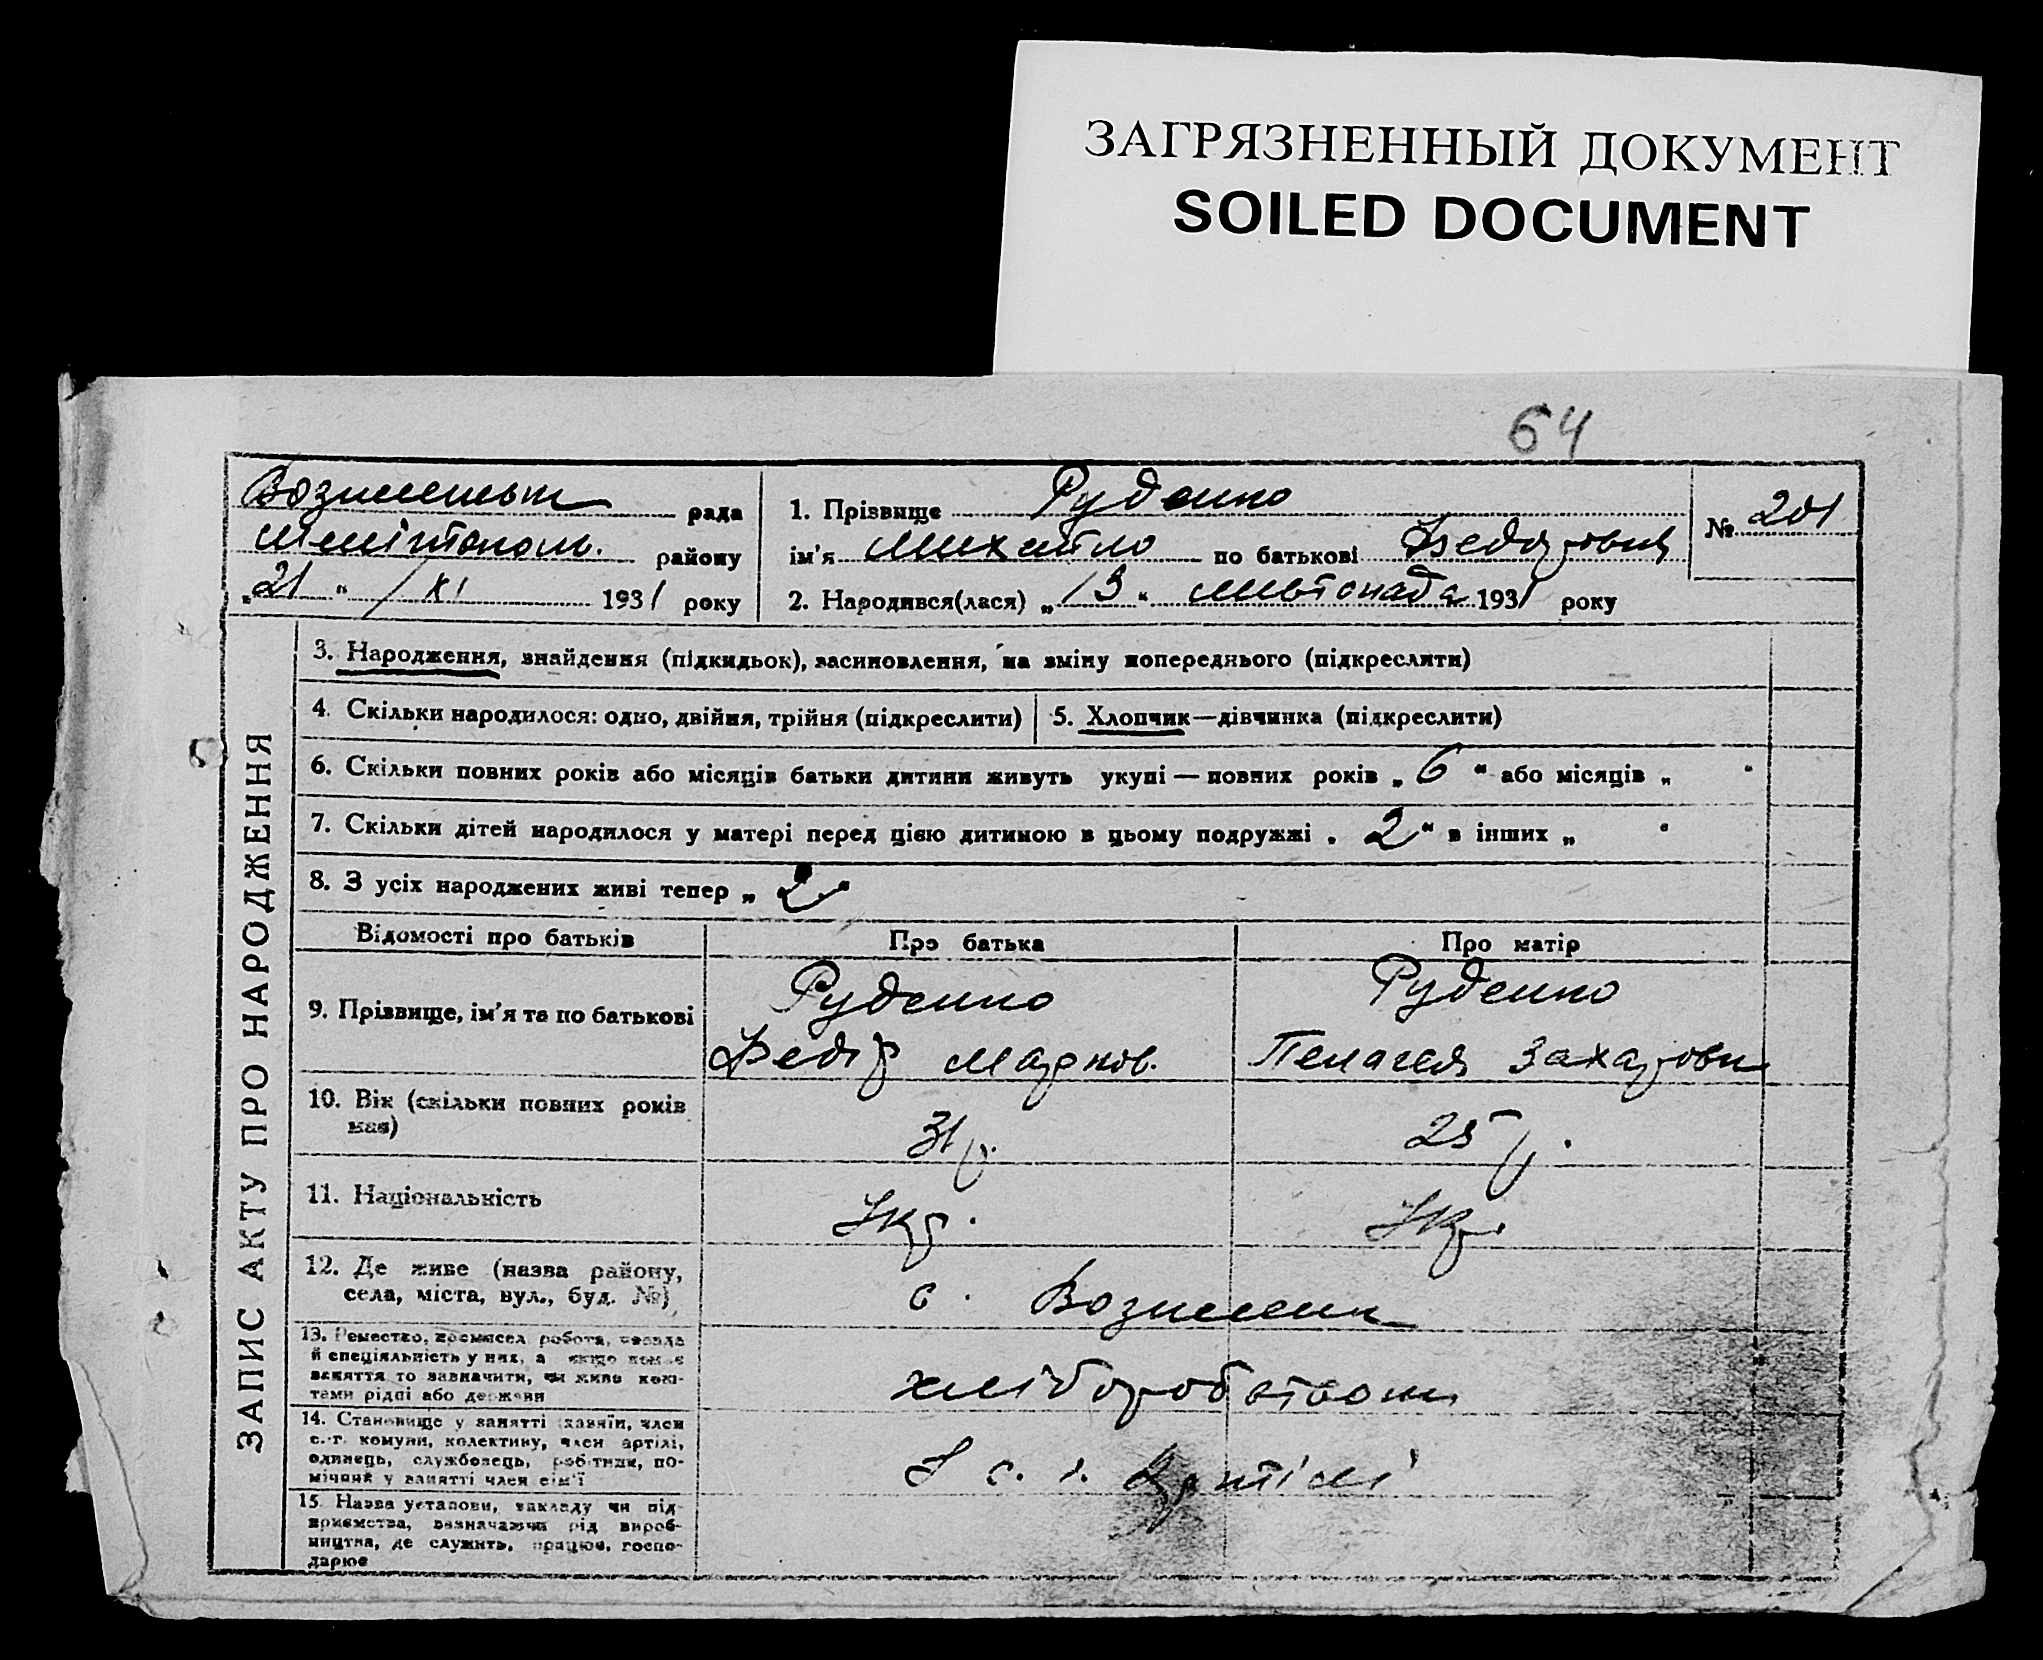 ЗАГРЯЗНЕННЫЙ ДОКУМЕНТ
SOILED DOCUMENT
64
рада
Мелітополь. району
„21“ / XI 1931 року
1. Прізвище Руденко
ім'я Михайло по батькові Федорович
2. Народився(лася) „13“ листопада 1931 року
№ 201
ЗАПИС АКТУ ПРО НАРОДЖЕННЯ
3. Народження, знайдення (підкидьок), засиновлення, на зміну попереднього (підкреслити)
4. Скільки народилося: одно, двійня, трійня (підкреслити)
5. Хлопчик—дівчинка (підкреслити)
6. Скільки повних років або місяців батьки дитини живуть укупі — повних років „6“ або місяців „ “
7. Скільки дітей народилося у матері перед цією дитиною в цьому подружжі „2“ в інших „ “
8. З усіх народжених живі тепер „2“
Відомості про батьків
Про батька
Про матір
9. Прізвище, ім'я та по батькові
Руденко
Федір Марков.
Руденко
Пелагея Захаровн
10. Вік (скільки повних років
має)
31 р.
25 р.
11. Національність
Укр.
Укр.
12. Де живе (назва району,
села, міста, вул., буд. №)
с. Вознесенк
13. Ремество, промисел робота, посада
й спеціяльність у них, а якщо немає
заняття то зазначити, чи живе кош-
тами рідні або держави
хліборобством
14. Становище у занятті хазяїн, член
с.-г. комуни, колективу, член артілі,
одинець, службовець, робітник, по-
мічник у занятті член сім'ї
У с. г. Артілі
15. Назва установи, закладу чи під-
приємства, зазначаючи рід вироб-
ництва, де служить, працює, госпо-
дарює